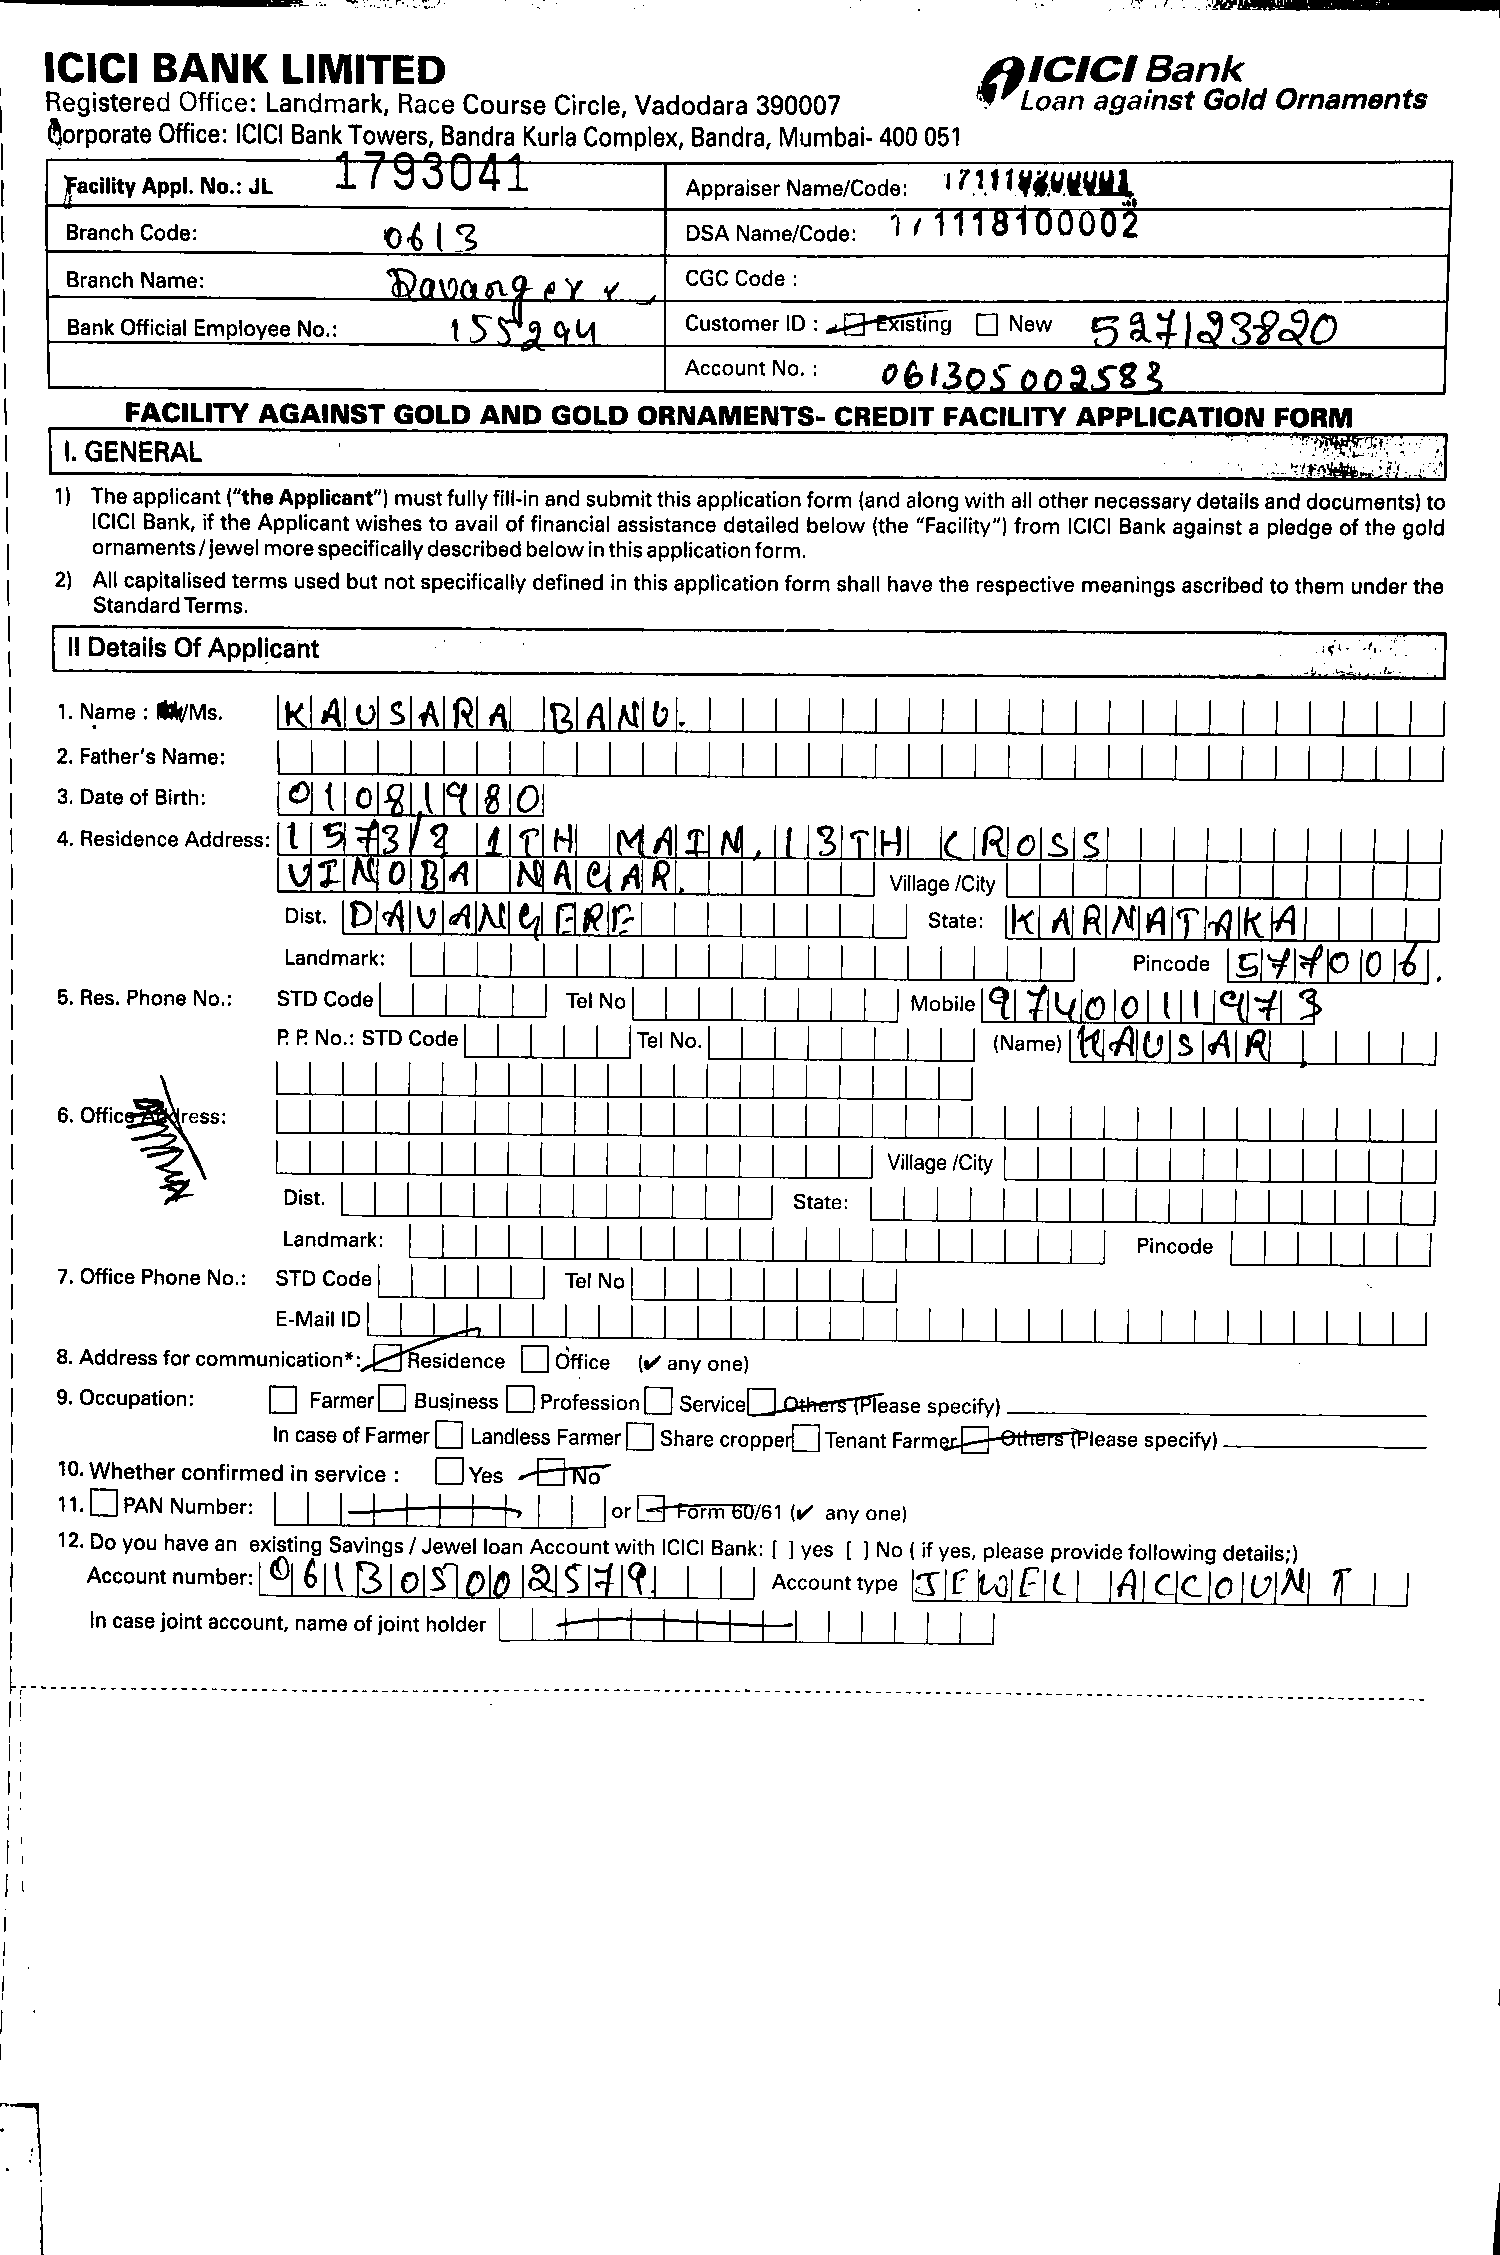 ICICI BANK LIMITED
Registered Office: Landmark, Race Course Circle, Vadodara 390007
Corporate Office: ICICI Bank Towers, Bandra Kurla Complex, Bandra, Mumbai- 400 051
ICICI Bank
Loan against Gold Ornaments
Facility Appl. No.: JL 1793041
Appraiser Name/Code:
Branch Code: 0613
DSA Name/Code: 171118100002
Branch Name:
CGC Code :
Bank Official Employee No.: 155294
Customer ID : Existing New 527123820
Account No. : 061305002583
FACILITY AGAINST GOLD AND GOLD ORNAMENTS- CREDIT FACILITY APPLICATION FORM
I. GENERAL
1) The applicant ("the Applicant") must fully fill-in and submit this application form (and along with all other necessary details and documents) to
ICICI Bank, if the Applicant wishes to avail of financial assistance detailed below (the "Facility") from ICICI Bank against a pledge of the gold
ornaments/jewel more specifically described below in this application form.
2) All capitalised terms used but not specifically defined in this application form shall have the respective meanings ascribed to them under the
Standard Terms.
II Details Of Applicant
1. Name : /Ms. KAUSARA BANU.
2. Father's Name:
3. Date of Birth: 01081980
4. Residence Address: 1573/2 1TH MAIN, 13TH CROSS
VINOBA NAGAR. Village /City
Dist. DAVANGERE State: KARNATAKA
Landmark: Pincode 577006.
5. Res. Phone No.: STD Code Tel No Mobile 9740011973
P. P. No.: STD Code Tel No. (Name) KAUSAR
6. Office Address:
Village /City
Dist. State:
Landmark: Pincode
7. Office Phone No.: STD Code Tel No
E-Mail ID
8. Address for communication*: Residence Office (✔ any one)
9. Occupation: Farmer Business Profession Service Others (Please specify)
In case of Farmer Landless Farmer Share cropper Tenant Farmer Others (Please specify)
10. Whether confirmed in service : Yes No
11. PAN Number: or Form 60/61 (✔ any one)
12. Do you have an existing Savings / Jewel loan Account with ICICI Bank: [ ] yes [ ] No ( if yes, please provide following details;)
Account number: 061305002579 Account type JEWEL ACCOUNT
In case joint account, name of joint holder